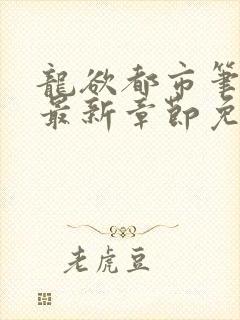 龍欲都市筆
最新章節免
老虎豆